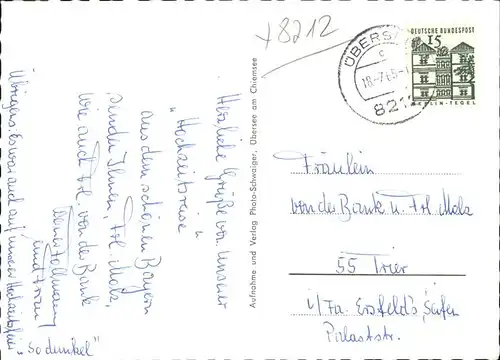 + 8212
Herzliche Grüße von unserer
"Hochzeitsreise"
aus dem schönen Bayern
senden Ihnen, Frl. Molz,
wie auch Frl. van der Bank
und Frau
Übrigens: Es war auch auf unserer Hochzeitsfeier
"so dunkel"
Aufnahme und Verlag Photo-Schwaiger, Übersee am Chiemsee
ÜBERSEE
c
18.-7.65-
821
DEUTSCHE BUNDESPOST
15
BERLIN-TEGEL
Fräulein
van der Bank u. Frl. Molz
55 Trier
i/Fa. Ersfeld's, Seifen
Palaststr.